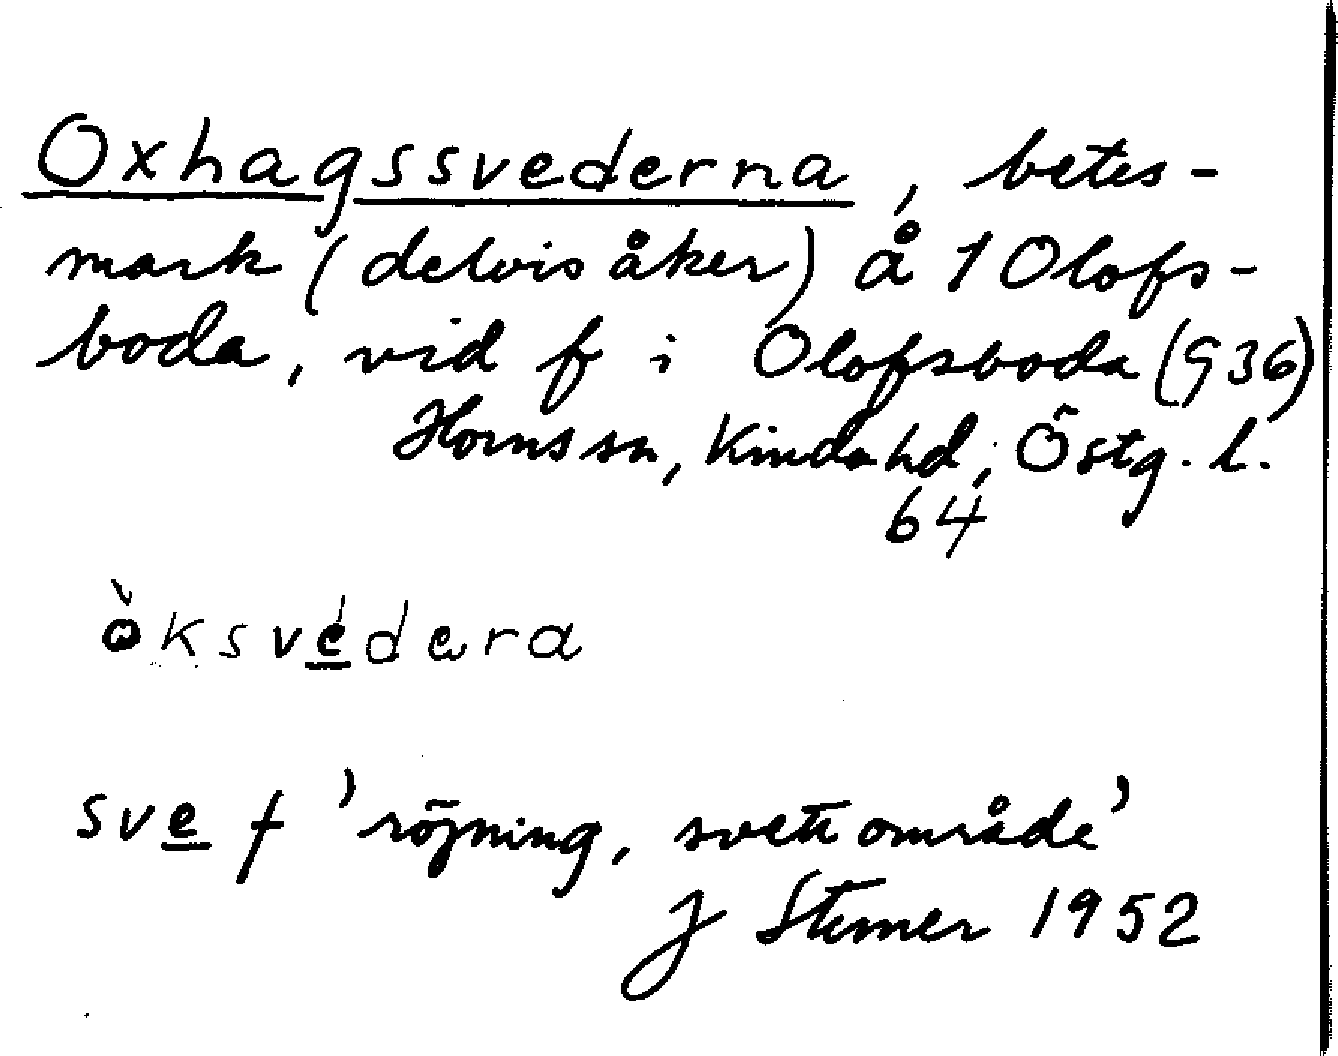 Oxhagssvederna, betes-
mark (delvis åker) å 1 Olofs-
boda, vid f i Olofsboda (936)
Horns sn, Kinda hd, Östg. l.
64
òksvédara
sve f 'röjning, svett område'
J Sterner 1952